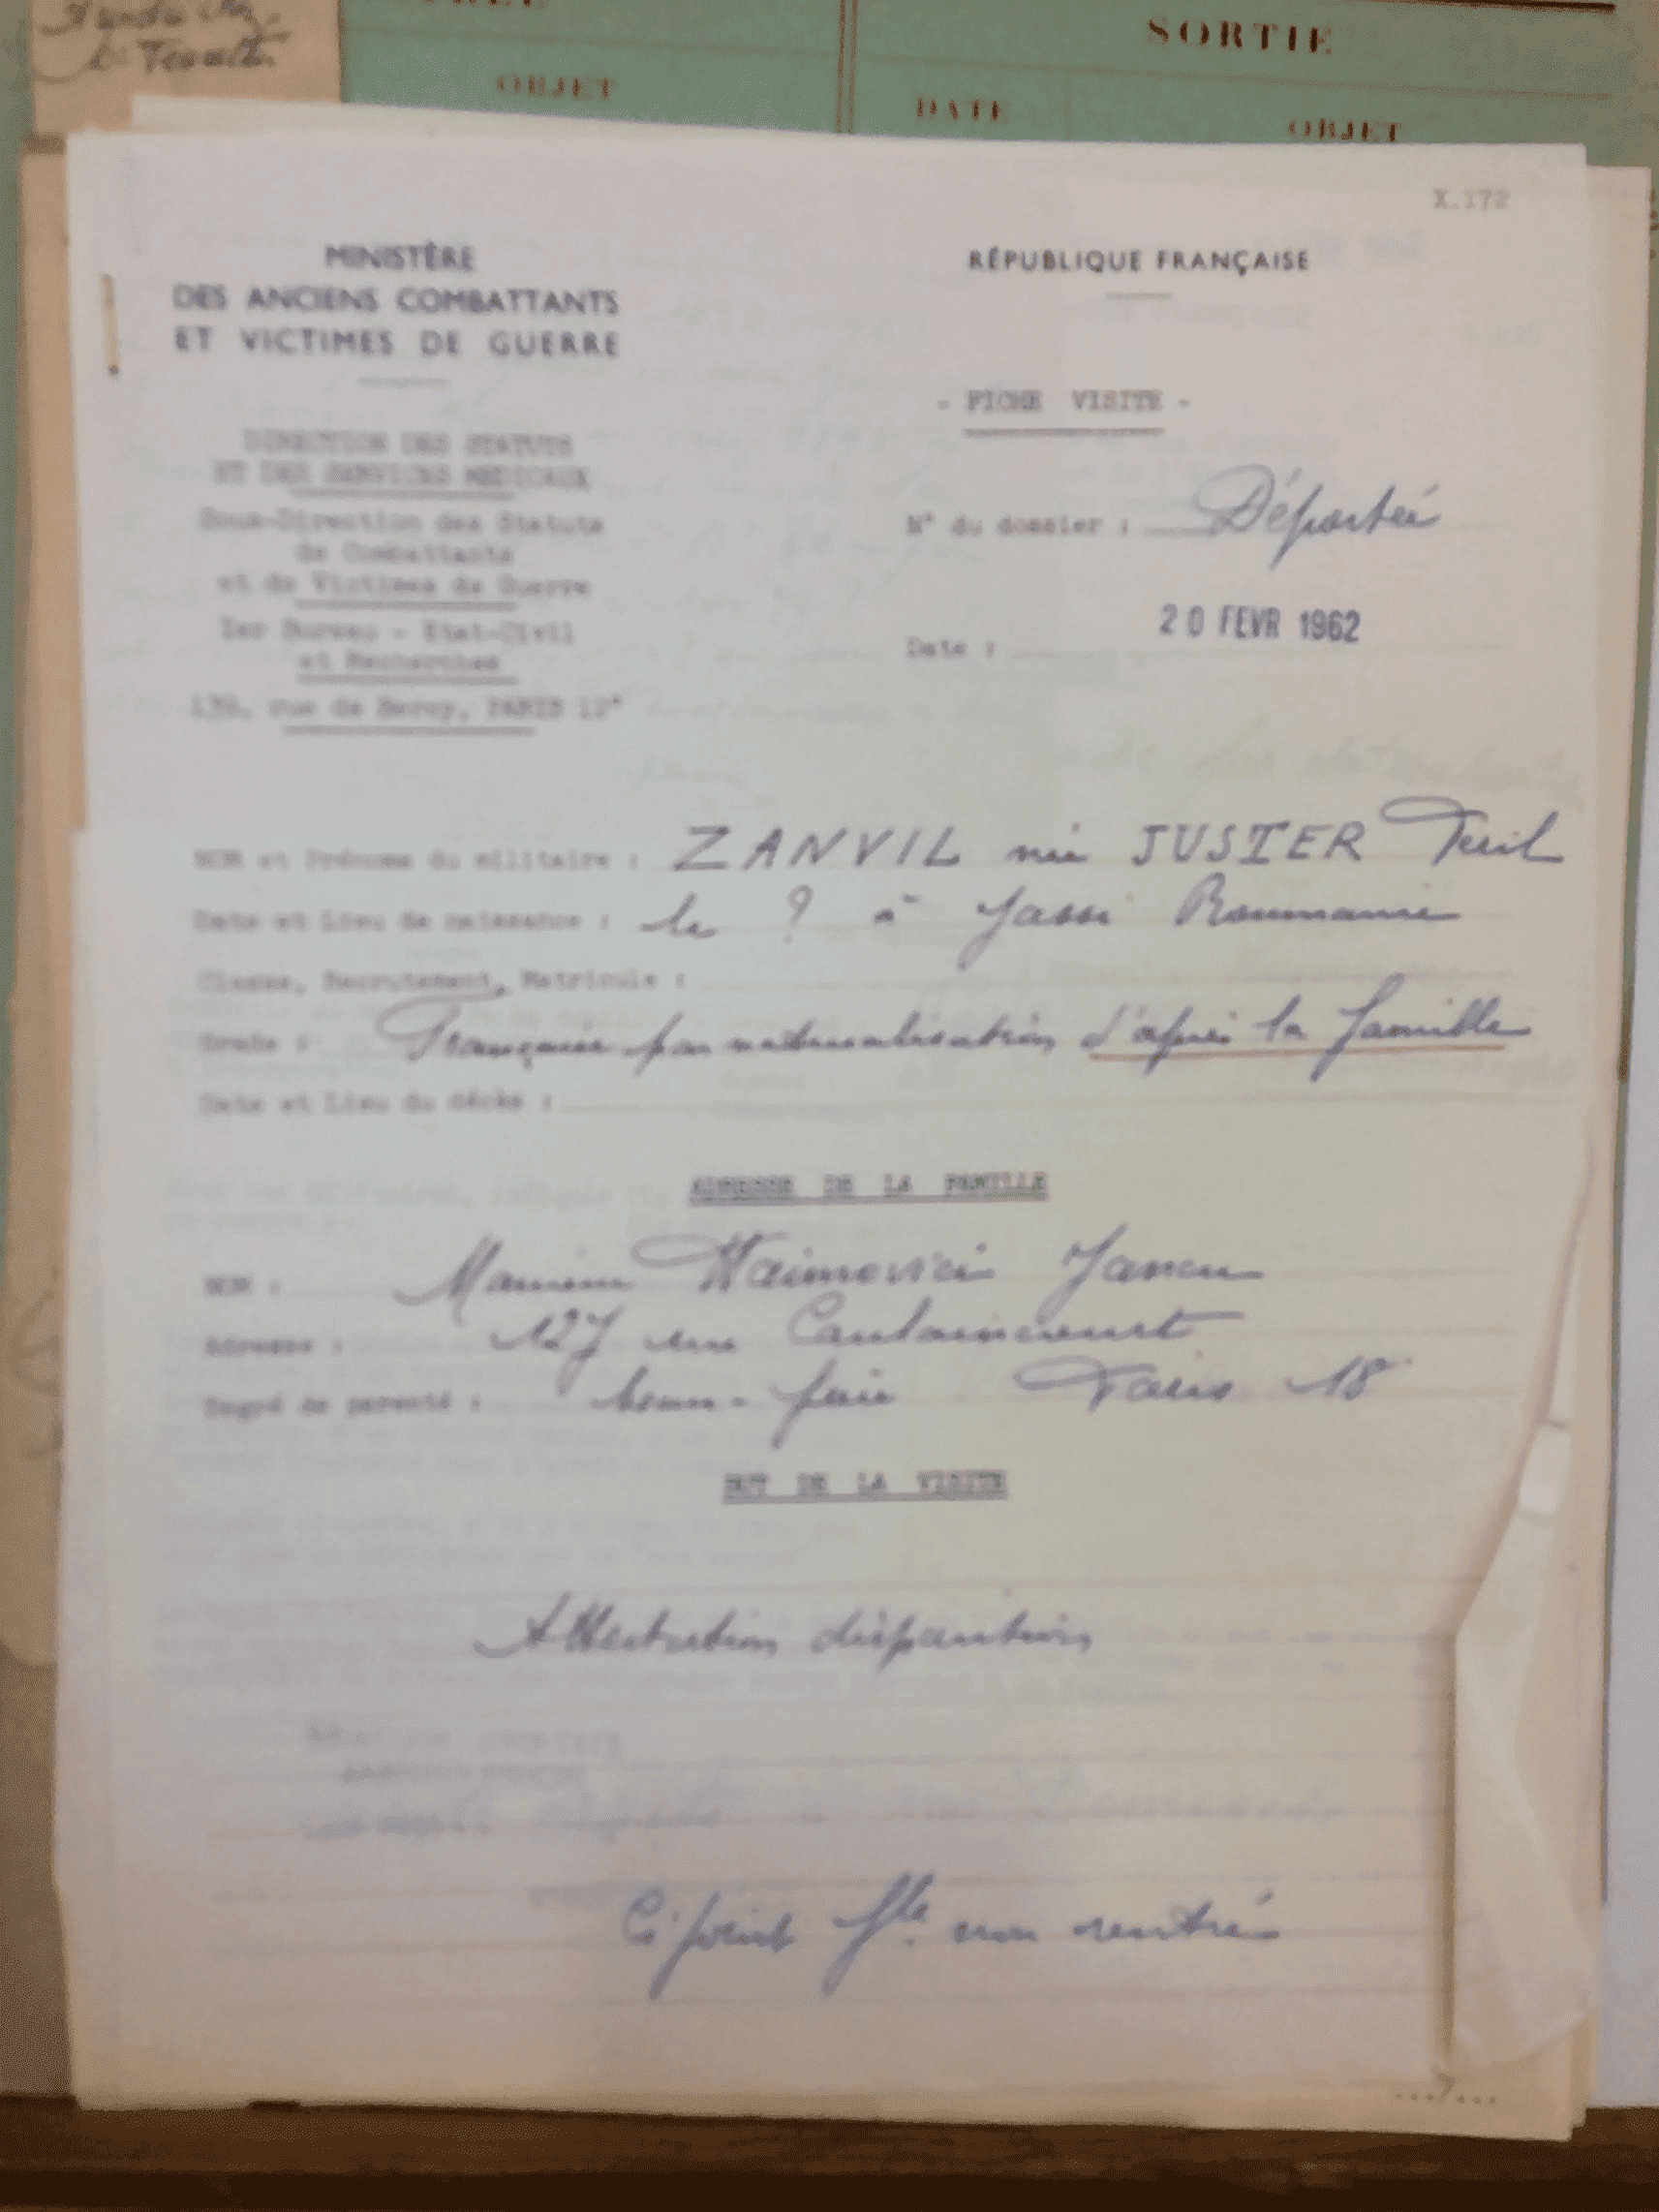 SORTIE
OBJET
DATE
OBJET
X.172
MINISTÈRE
DES ANCIENS COMBATTANTS
ET VICTIMES DE GUERRE
RÉPUBLIQUE FRANÇAISE
- FICHE VISITE -
DIRECTION DES STATUTS
ET DES SERVICES MEDICAUX
Sous-Direction des Statuts
de Combattants
et de Victimes de Guerre
Ier Bureau - Etat-Civil
et Recherches
139, rue de Bercy, PARIS 12°
N° du dossier : Déportée
Date : 20 FEVR 1962
NOM et Prénoms du militaire : ZANVIL née JUSTER
Date et Lieu de naissance : le ? à Jassi Roumanie
Classe, Recrutement, Matricule :
Grade : Française par naturalisation d'après la famille
Date et Lieu du décès :
ADRESSE DE LA FAMILLE
NOM : Monsieur Haimovici Jancu
Adresse : 127 rue Caulaincourt
Degré de parenté : beau-frère Paris 18°
BUT DE LA VISITE
Attestation disparition
Ci joint non rentré
.../...